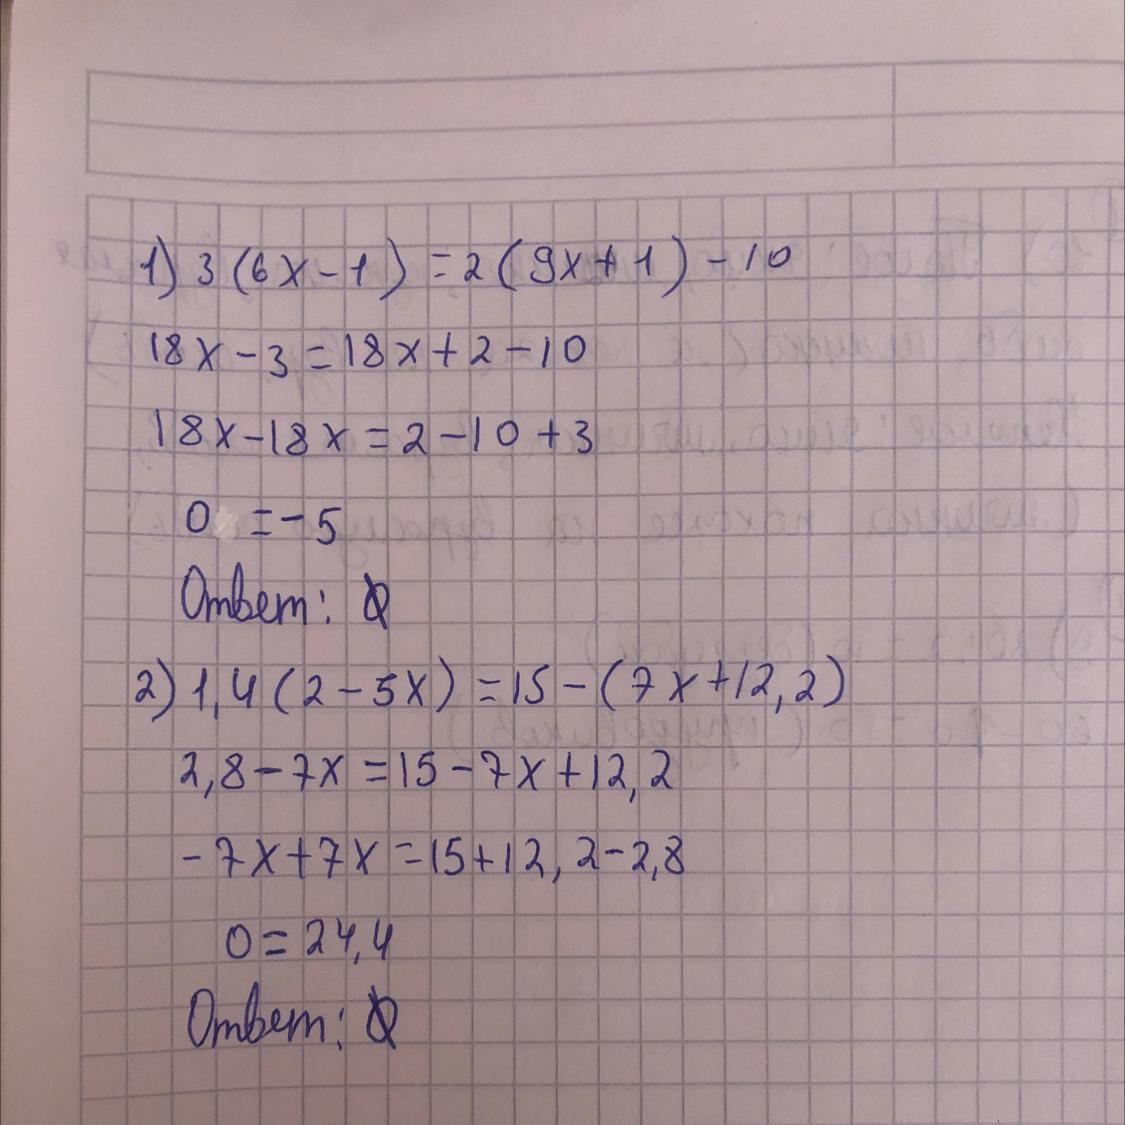 1) 3(6x-1)=2(9x+1)-10
18x-3=18x+2-10
18x-18x=2-10+3
0 =-5
Ответ: ∅
2) 1,4(2-5x)=15-(7x+12,2)
2,8-7x=15-7x+12,2
-7x+7x=15+12,2-2,8
0=24,4
Ответ: ∅